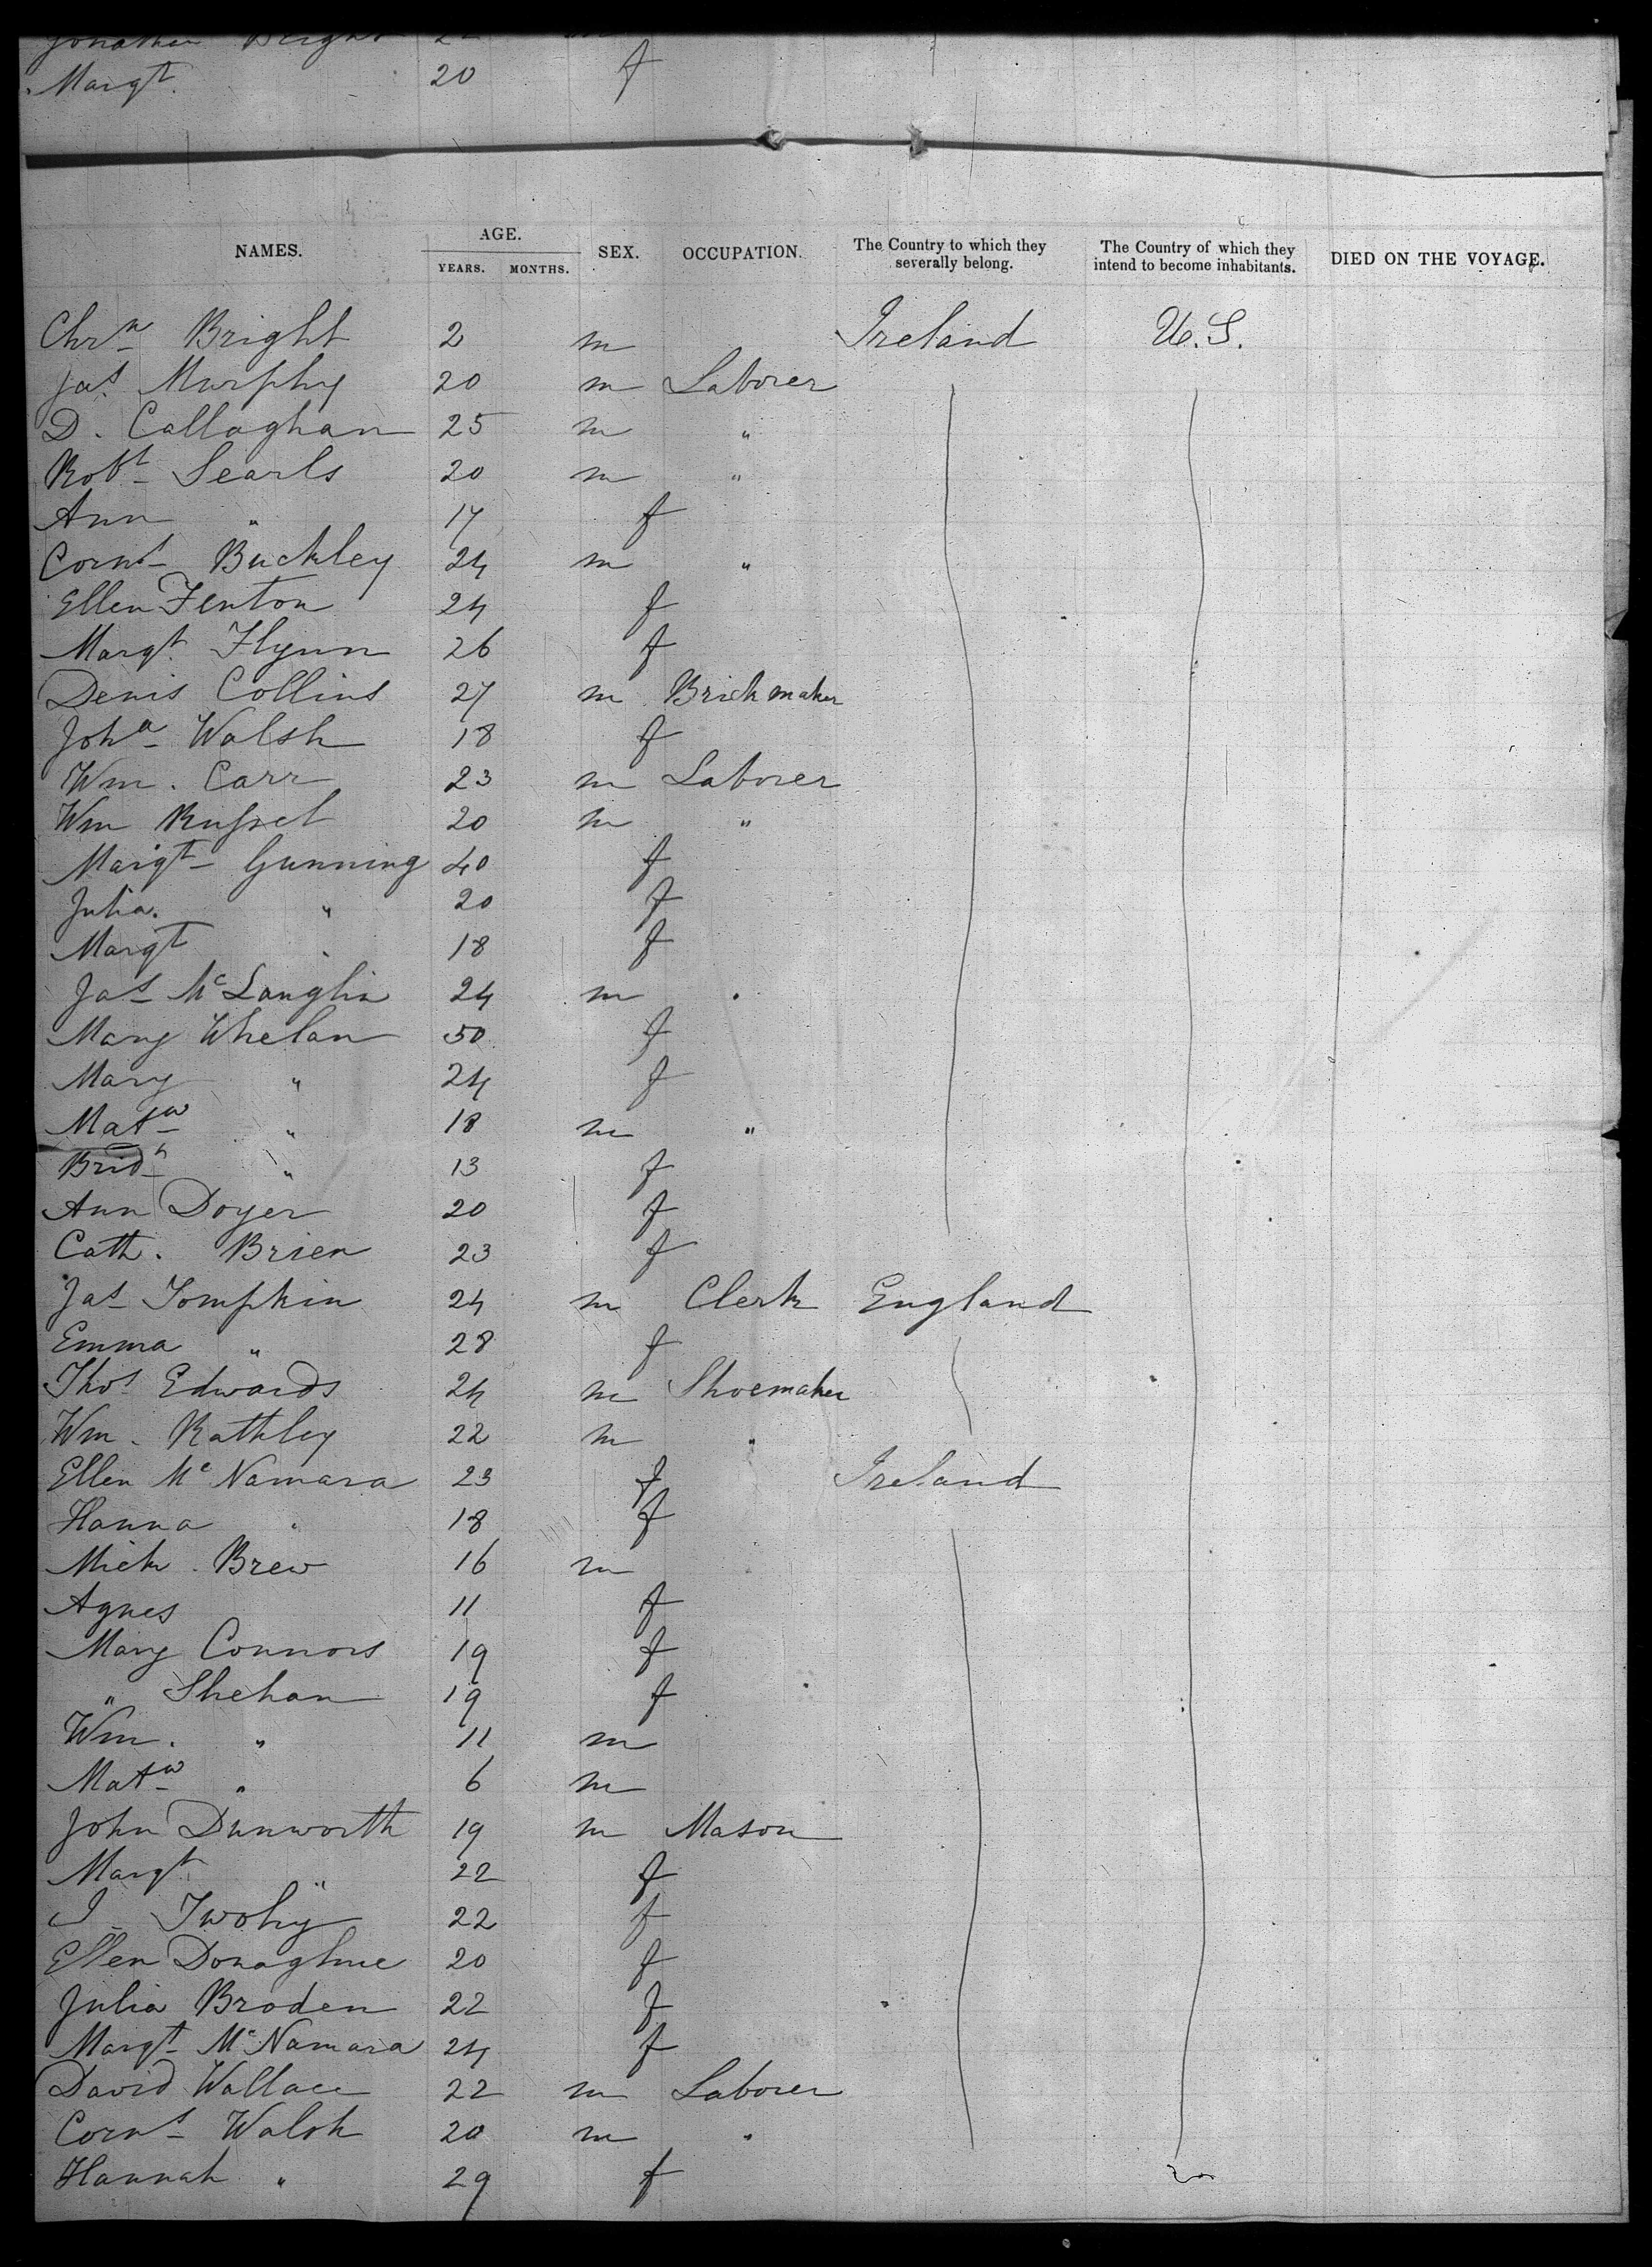 Jonathan Bright 22 m
Margt. 20 f
NAMES. AGE. YEARS. MONTHS. SEX. OCCUPATION. The Country to which they severally belong. The Country of which they intend to become inhabitants. DIED ON THE VOYAGE.
Chrn Bright 2 m Ireland U.S.
Jas Murphy 20 m Laborer
D. Callaghan 25 m "
Robt Searls 20 m "
Ann " 17 f
Corns Buckley 24 m "
Ellen Fenton 24 f
Margt. Flynn 26 f
Denis Collins 27 m Brickmaker
Joha Walsh 18 f
Wm. Carr 23 m Laborer
Wm Russel 20 m "
Margt Gunning 40 f
Julia. " 20 f
Margt " 18 f
Jas McLanglin 24 m "
Mary Whelan 50 f
Mary " 24 f
Matw " 18 m "
Bridt " 13 f
Ann Doyer 20 f
Cath. Brien 23 f
Jas Tompkin 24 m Clerk England
Emma " 28 f
Thos Edwards 24 m Shoemaker
Wm. Rathley 22 m "
Ellen McNamara 23 f Ireland
Hanna " 18 f
Mich. Brew 16 m
Agnes 11 f
Mary Connors 19 f
" Shehan 19 f
Wm. " 11 m
Matw " 6 m
John Dunworth 19 m Mason
Margt " 22 f
J Twohy 22 f
Ellen Donaghue 20 f
Julia Broden 22 f
Margt McNamara 24 f
David Wallace 22 m Laborer
Corns Walsh 20 m "
Hannah " 29 f